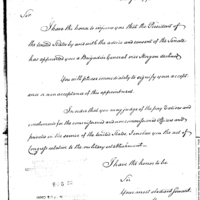 Sir
I have the honor to inform you that the President of
the United States by and with the advice and consent of the Senate
has appointed you a Brigadier General vice Morgan declined
You will please immediately to signify your accept-
ance or non acceptance of this appointment.
In order that you may judge of the pay & rations and
emoluments for the commissioned and non commissioned officers and
privates in the service of the United States, I enclose you the act of
Congress relative to the military establishment.
I have the honor to be
Sir
Your most obedient Servant